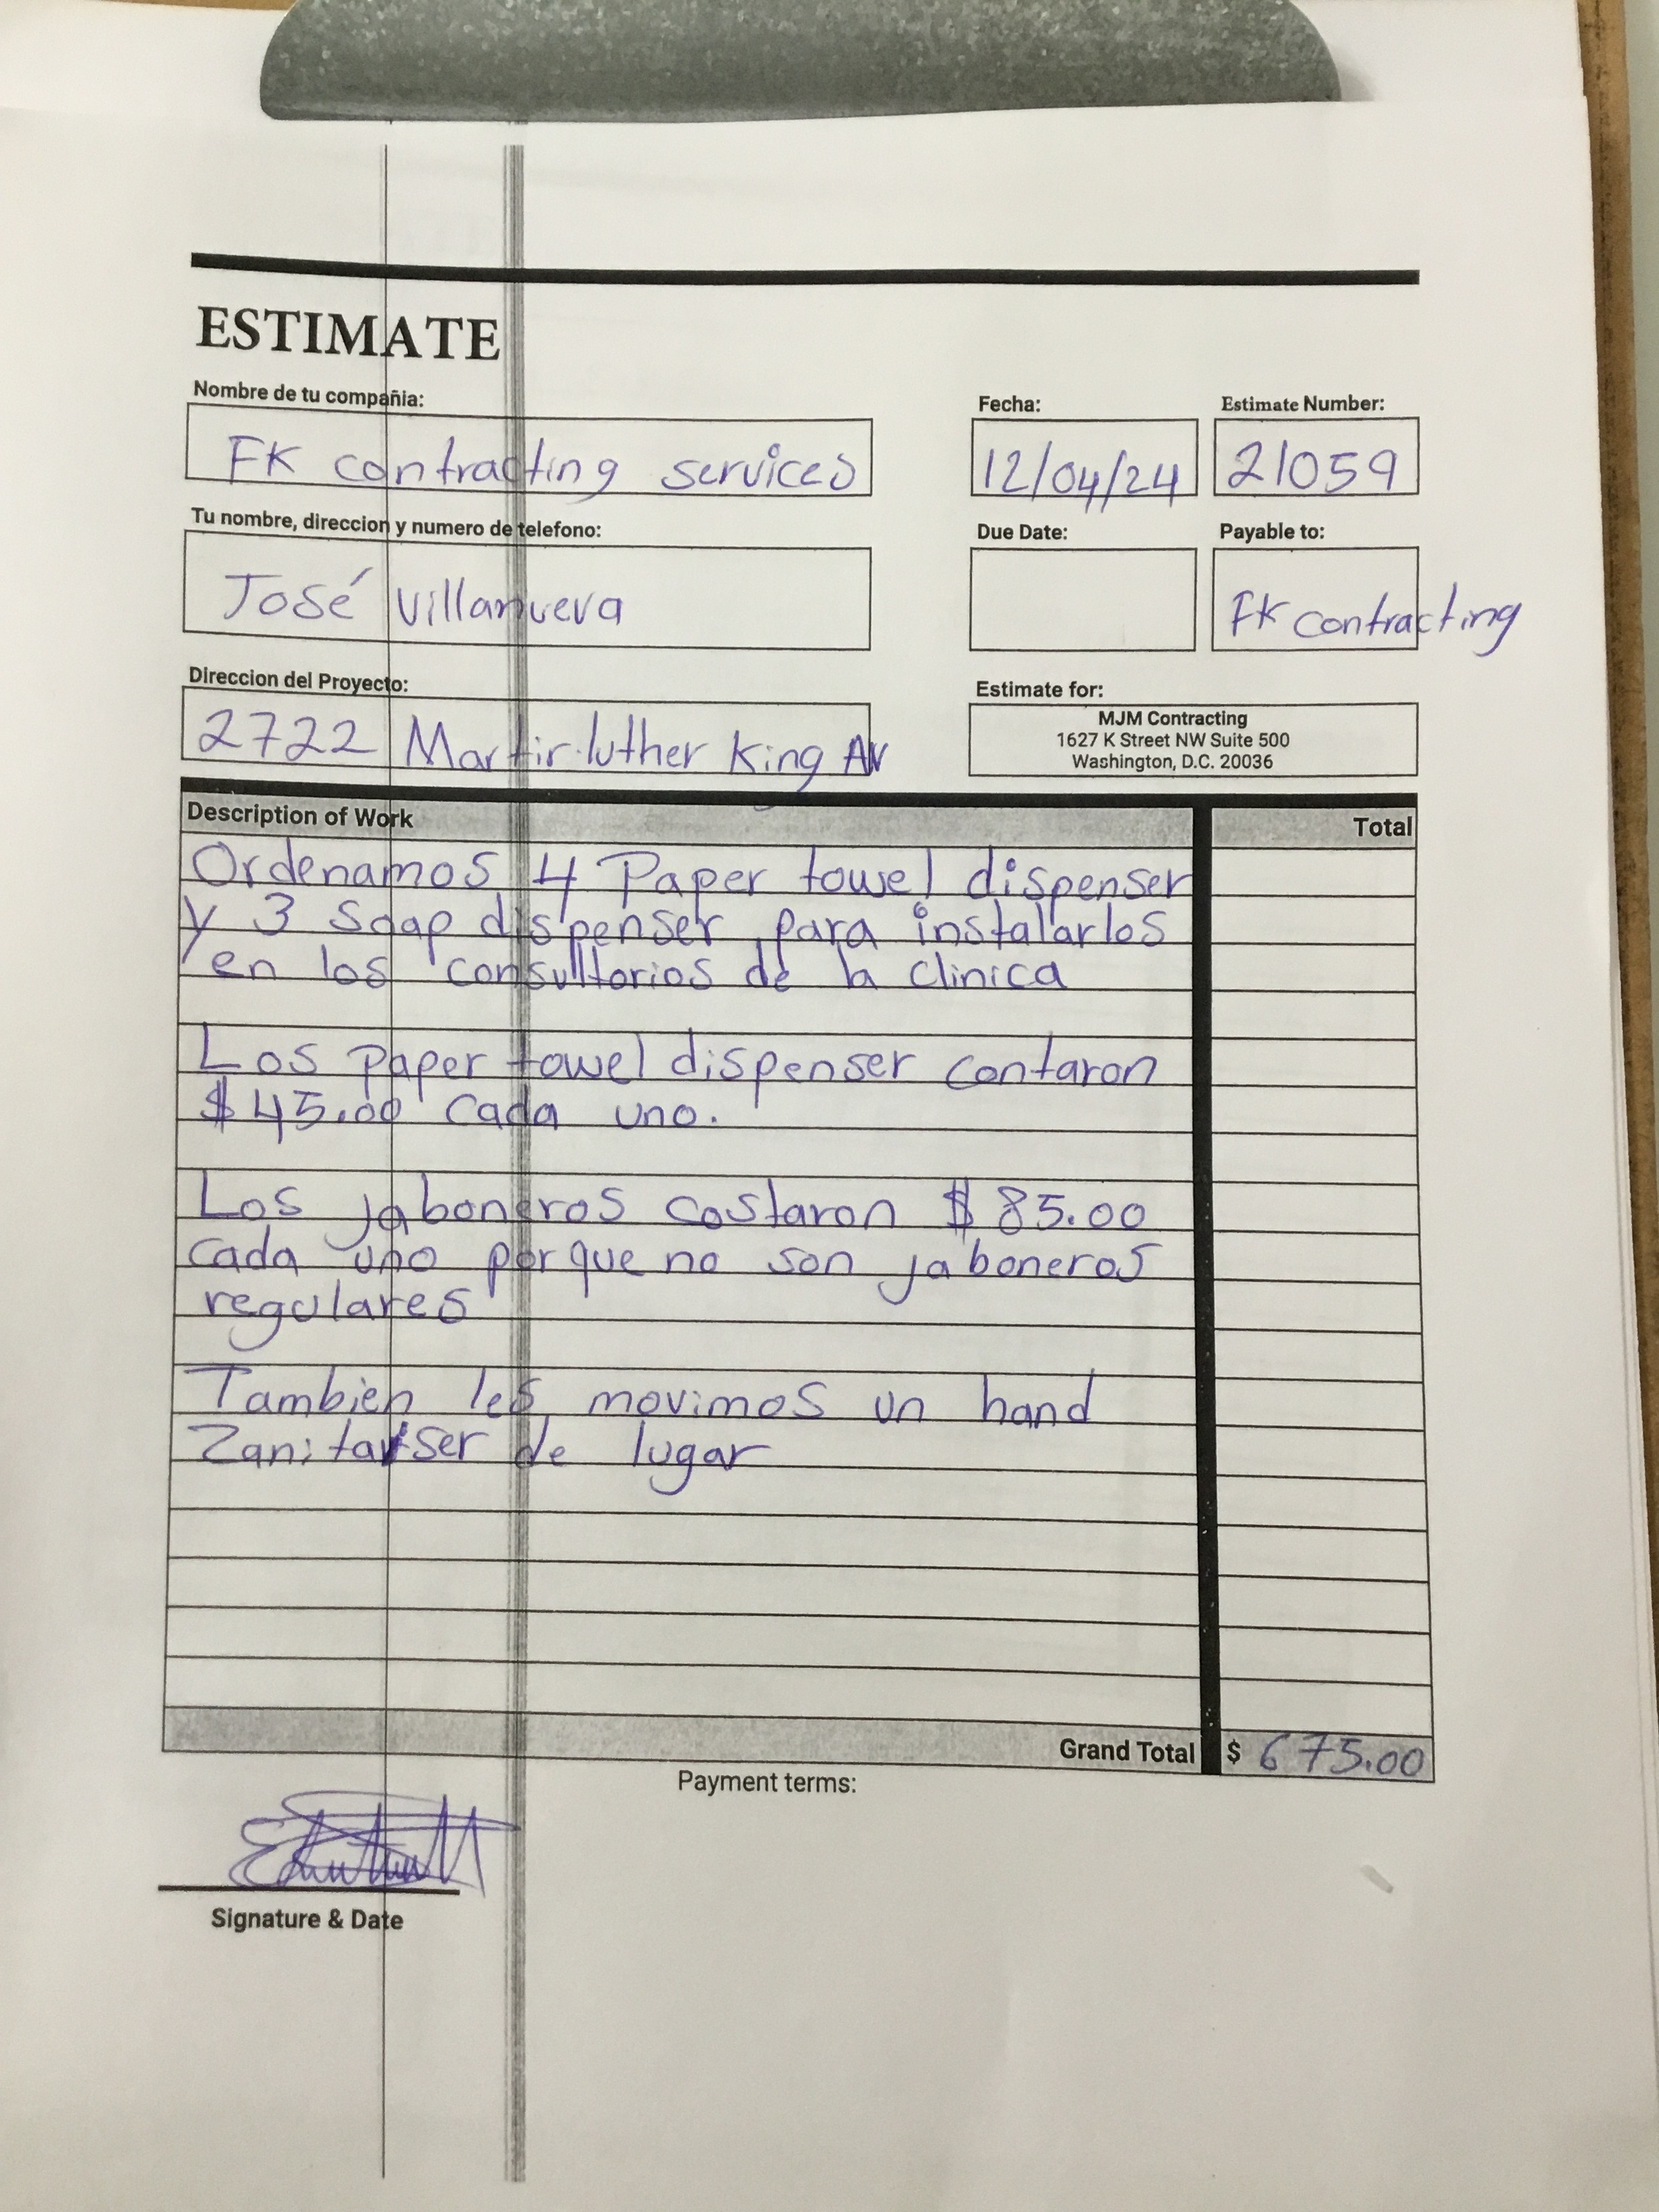 ESTIMATE
Nombre de tu compañia:
FK contracting services
Fecha:
12/04/24
Estimate Number:
21059
Tu nombre, direccion y numero de telefono:
José Villanueva
Due Date:
Payable to:
FK contracting
Direccion del Proyecto:
2722 Martir.luther King AV
Estimate for:
MJM Contracting
1627 K Street NW Suite 500
Washington, D.C. 20036
Description of Work
Total
Ordenamos 4 Paper towel dispenser
y 3 Soap dispenser para instalarlos
en los consultorios de la clinica
Los paper towel dispenser contaron
$45.00 cada uno.
Los jaboneros costaron $ 85.00
cada uno porque no son jaboneros
regulares
Tambien les movimos un hand
de lugar
Grand Total
$ 675.00
Payment terms:
Signature & Date